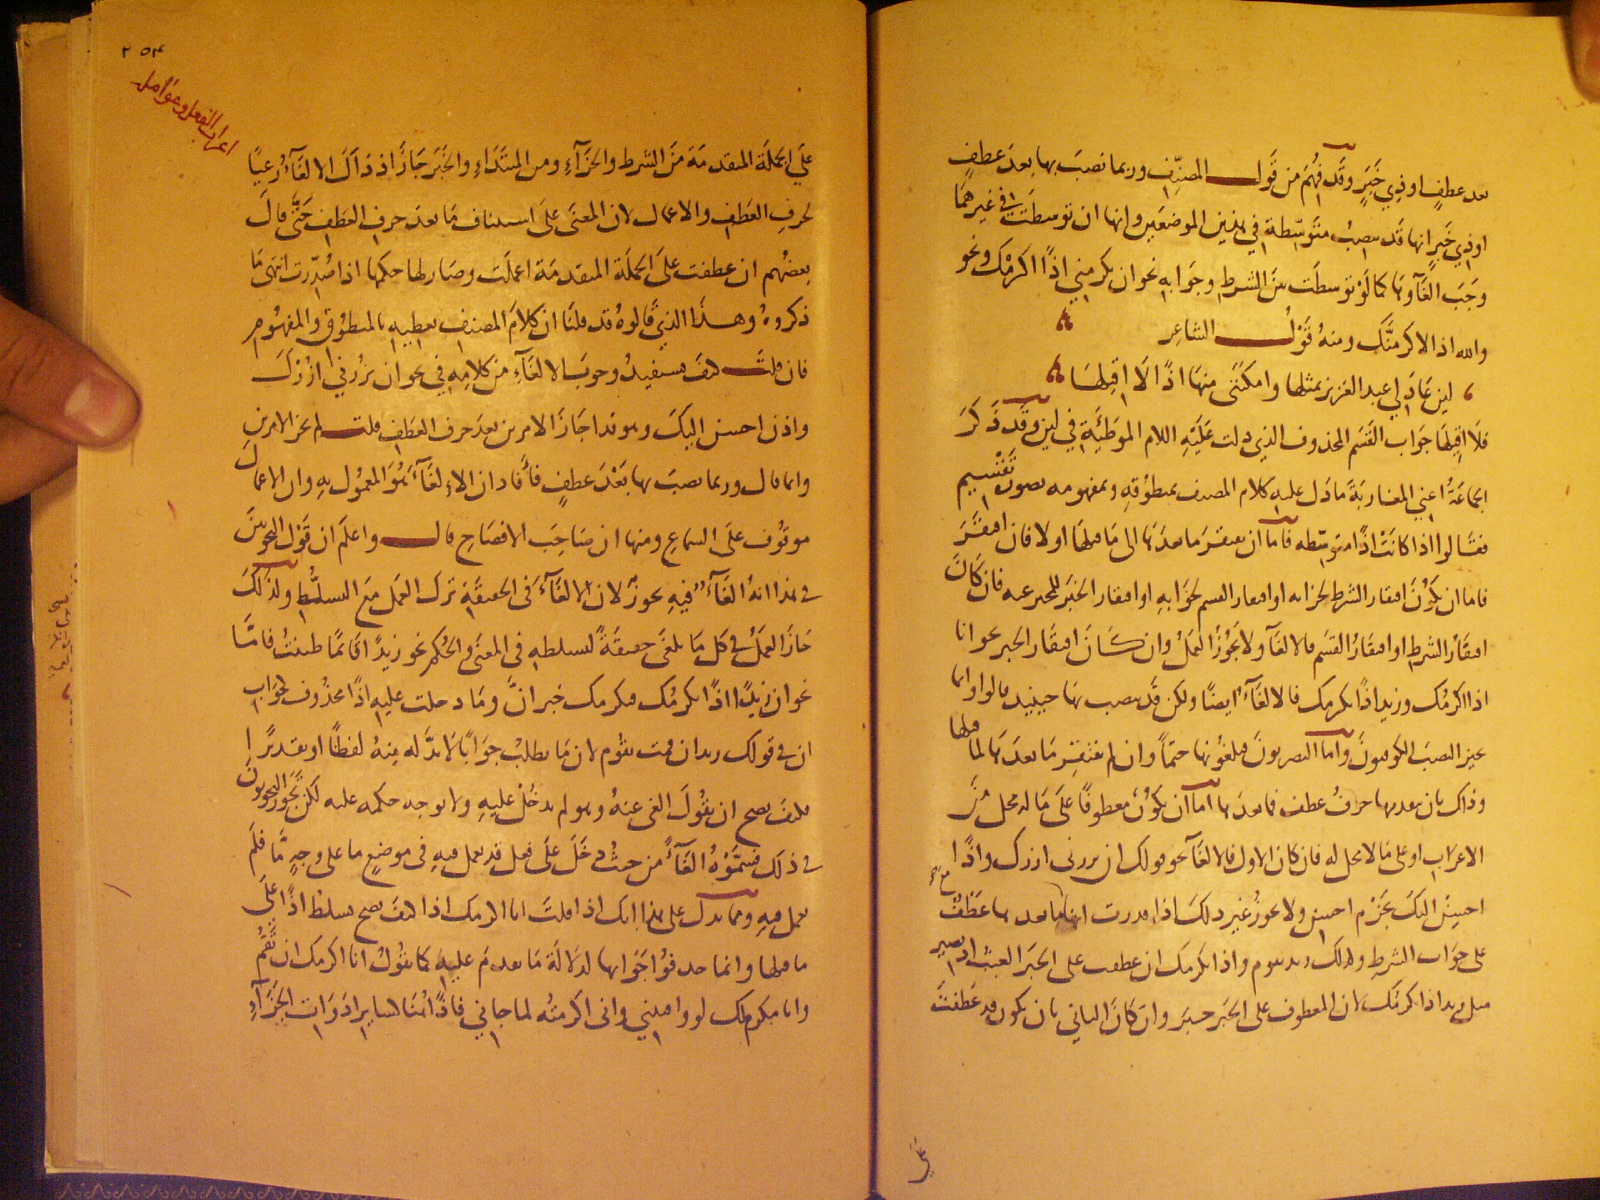 بعد عطف او ذي خبر وقد فهم من قول المصنف وربما نصب بها بعد عطف
او ذي خبر انها قد تنصب متوسطة في هذين الموضعين وانها ان توسطت في غيرهما
وجب الغاؤها كما لو توسطت بين الشرط وجوابه نحو ان تكرمني اذًا اكرمك ونحو
والله اذا لاكرمنك ومنه قول الشاعر
لين عاد لي عبد العزيز بمثلها وامكنني منها اذًا لا اقيلها
فلا اقيلها جواب القسم المحذوف الذي دلت عليه اللام الموطئة في لين وقد ذكر
الجماعة اعني المغاربة ما دل عليه كلام المصنف بمنطوقه وبمفهومه بصورة تقسيم
فقالوا اذا كانت اذًا متوسطه فاما ان يفتقر ما بعدها الى ما قبلها اولا فان افتقر
فاما ان يكون افتقار الشرط لجزائه او افتقار القسم لجوابه او افتقار الخبر للمخبر عنه فان كان
افتقار الشرط او افتقار القسم فالالغا ولا يجوز العمل وان كان افتقار الخبر نحو انا
اذا اكرمك وزيد اذًا يكرمك فالالغاء ايضًا ولكن قد ينصب بها حينيد قالوا وانما
يجيز النصب الكوفيون واما البصريون فيلغونها حتمًا وان لم يفتقر ما بعدها لما قبلها
وذلك بان يتقدمها حرف عطف فما بعدها اما ان يكون معطوفًا على ما له محل من
الاعراب او على ما لا محل له فان كان الاول فالالغا نحو قولك ان تزرني ازرك واذًا
احسن اليك بجزم احسن ولا يجوز غير ذلك اذا قدرت انها ما بعدها عطف
على جواب الشرط وكذلك زيد يقوم واذا يكرمك ان عطفت على الخبر الغيت اذ يصير
مثل زيد اذا يكرمك لان المعطوف على الخبر خبر وان كان الثاني بان يكون قد عطفت
على
٢٥٣
اعراب الفعل وعوامله
على الجملة المتقدمة من الشرط والجزاء ومن المبتداء والخبر جاز اذ ذاك الالغاء رعيًا
لحرف العطف والاعمال لان المعنى على استئناف ما بعد حرف العطف حتى قال
بعضهم ان عطفت على الجملة المتقدمة اعملت وصار لها حكمها اذا صُدّرت انتهى ما
ذكروه وهذا الذي قالوه قد قلنا ان كلام المصنف يعطيه بالمنطوق والمفهوم
فان قلت كيف يستفيد وجوب الالغاء من كلامه في نحو ان تزرني ازرك
واذن احسن اليك وهو قد اجاز الامرين بعد حرف العطف قلت لم يجز الامرين
وانما قال وربما نصب بها بعد عطف فافاد ان الالغاء هو المعمول به وان الاعمال
موقوف على السماع ومنها ان صاحب الافصاح قال واعلم ان قول النحويين
في هذا انه الغاء فيه تجوز لان الالغاء في الحقيقة ترك العمل مع التسلط ولذلك
جاز العمل في كل ما يلغى حقيقة لتسلطه في المعنى والحكم نحو زيدًا قائمًا ظننت فاما
نحو ان زيدًا اذًا يكرمك فيكرمك خبر ان وما دخلت عليه اذًا محذوف لجواب
ان في قولك زيد ان قمت يقوم لان ما يطلب جوابًا لا بد له منه لفظًا او تقديرًا
فكيف يصح ان يقول الغى عنه وهو لم يدخل عليه ولا توجه حكمه عليه لكن تجوز النحويون
في ذلك فسموه الغاء من حيث دخل على فعل قد يعمل فيه في موضع ما على وجه ما فلم
يعمل فيه ومما يدل على هذا انك اذا قلت انا اكرمك اذا كيف يصح تسلط اذًا على
ما قبلها وانما حذفوا جوابها لدلالة ما تقدم عليه كما يقول انا اكرمك ان تقم
وانا مكرم لك لو وافيتني واني اكرمته لما جاني فاذًا اثمنا لساير ادوات الجزاء